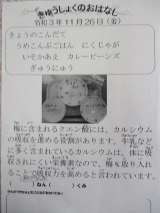 きゅうしょくのおはなし
令和3年11月26日(金)
きょうのこんだて
うめこんぶごはん　にくじゃが
いそかあえ　カレービーンズ
ぎゅうにゅう
梅に含まれるクエン酸には、カルシウム
の吸収を高める役割があります。牛乳など
に多く含まれているカルシウムは、体に吸
収されにくい栄養素なので、梅を取り入れ
ることで吸収力を高めると言われています。
)ねん(　)くみ